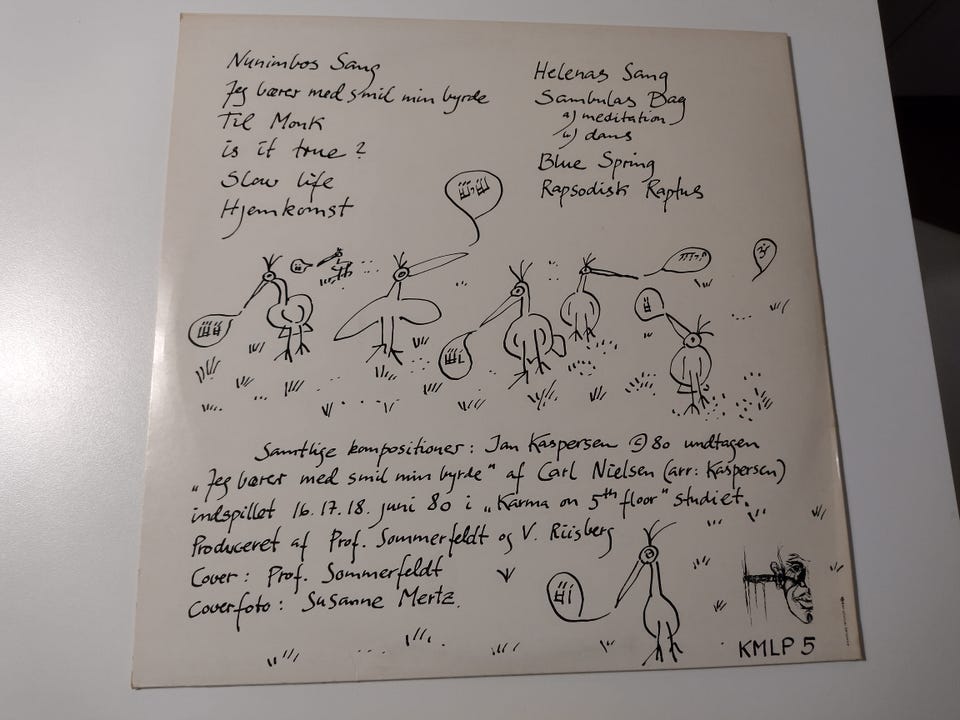 Nunimbos Sang
Jeg bærer med smil min byrde
Til Monk
is it true?
Slow life
Hjemkomst
Helenas Sang
Sambulas Dag
a) meditation
b) dans
Blue Spring
Rapsodisk Raptus
Samtlige kompositioner: Jan Kaspersen © 80 undtagen
"Jeg bærer med smil min byrde" af Carl Nielsen (arr: Kaspersen)
indspillet 16. 17. 18. juni 80 i "Karma on 5th floor" studiet.
Produceret af Prof. Sommerfeldt og V. Riisberg
Cover: Prof. Sommerfeldt
Coverfoto: Susanne Mertz.
KMLP 5